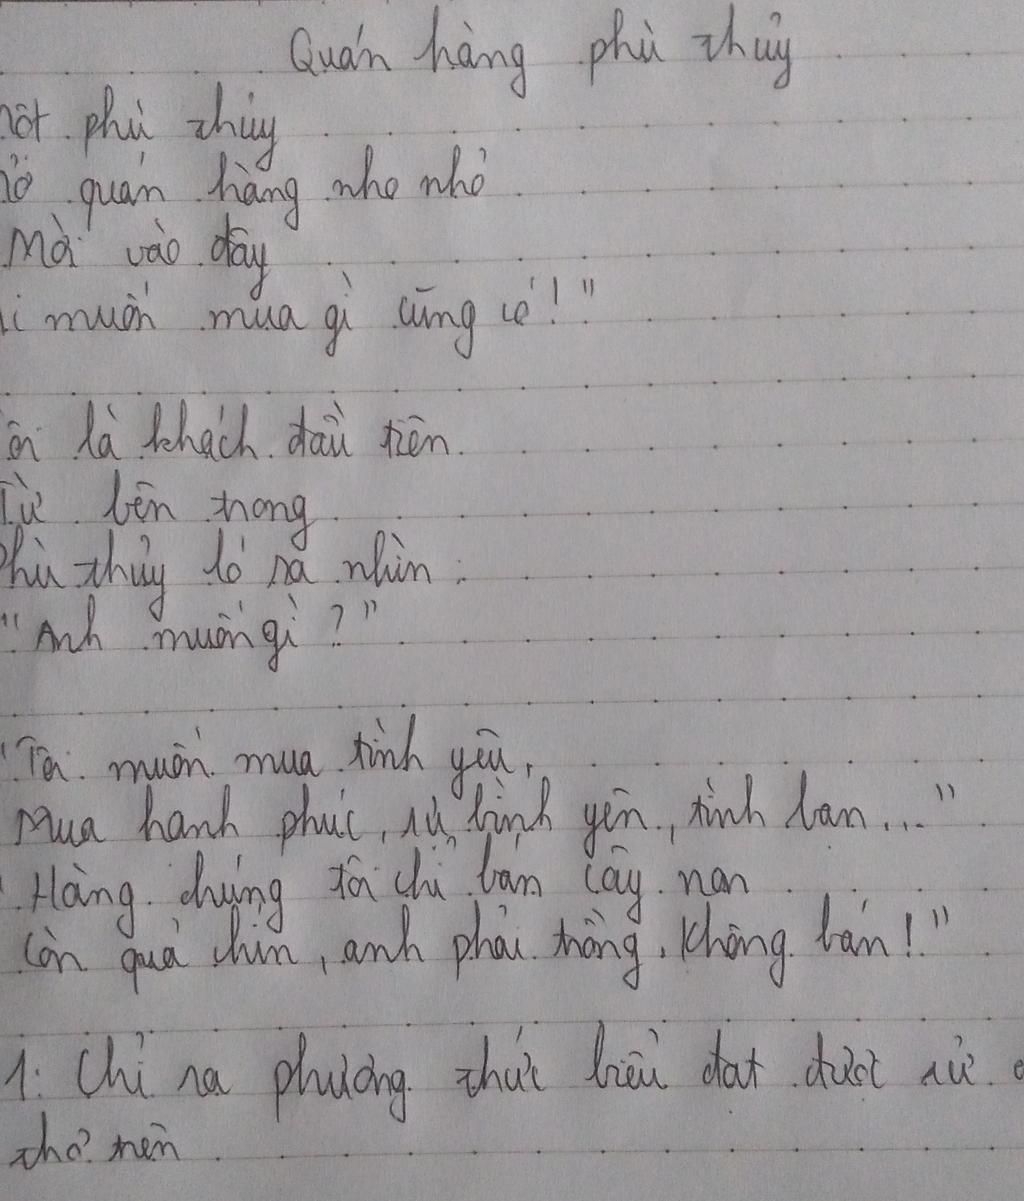 Quán hàng phù thủy
một phù thủy
mở quán hàng nho nhỏ
Mời vào đây
muốn mua gì cũng có!"
Tôi là khách đầu tiên.
Từ bên trong
Phù thủy ló ra nhìn:
"Anh muốn gì?"
"Tôi muốn mua tình yêu,
Mua hạnh phúc, sự bình yên, tình bạn..."
"Hàng chúng tôi chỉ bán cây non
Còn quả chín, anh phải trồng, không bán!"
1. Chỉ ra phương thức biểu đạt được sử
thơ trên